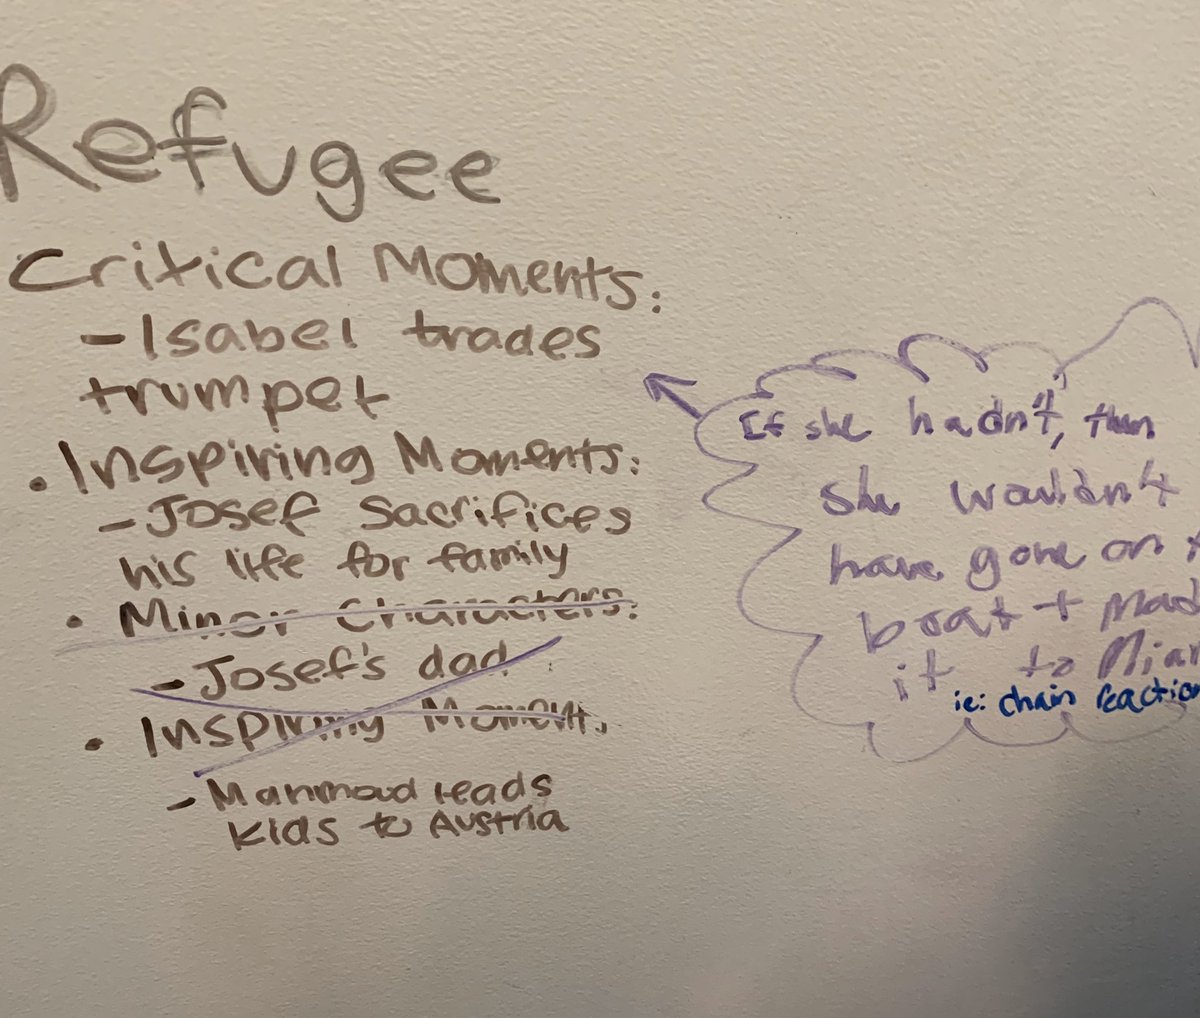 Refugee
Critical Moments:
- Isabel trades
trumpet
• Inspiring Moments:
- Josef sacrifices
his life for family
• Minor Characters:
- Josef's dad
• Inspiring Moments,
- Mahmoud leads
kids to Austria
If she hadn't, then
she wouldn't
have gone on
boat + mad
it to Miam
ie: chain reaction